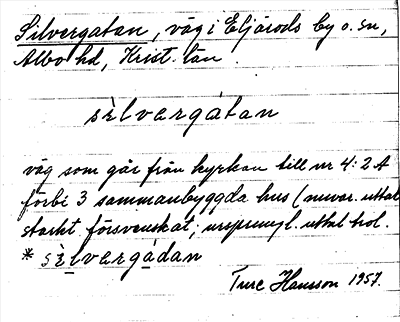 Silvergatan, väg i Eljaröds by o. sn,
Albo hd, Krist. län.
sèlvergátan
väg som går från kyrkan till nr 4:2 A
förbi 3 sammanbyggda hus (nuvar. uttal
starkt försvenskat; ursprungl. uttal trol.
* sèlvergádan
Ture Hansson 1957.